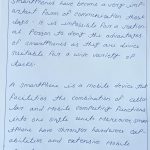 Smartphones have become a very imp
ortant form of communication these
days. It is impossible for a
Person to deny the advantages
of smartphones as they are
suitable for a wide variety of
tasks.
A smartphone is a mobile device that
facilities the combination of cellul
and mobile computing functions
into one single unit. smart
phone have stronger hardware cap
abilities and extensive mobile